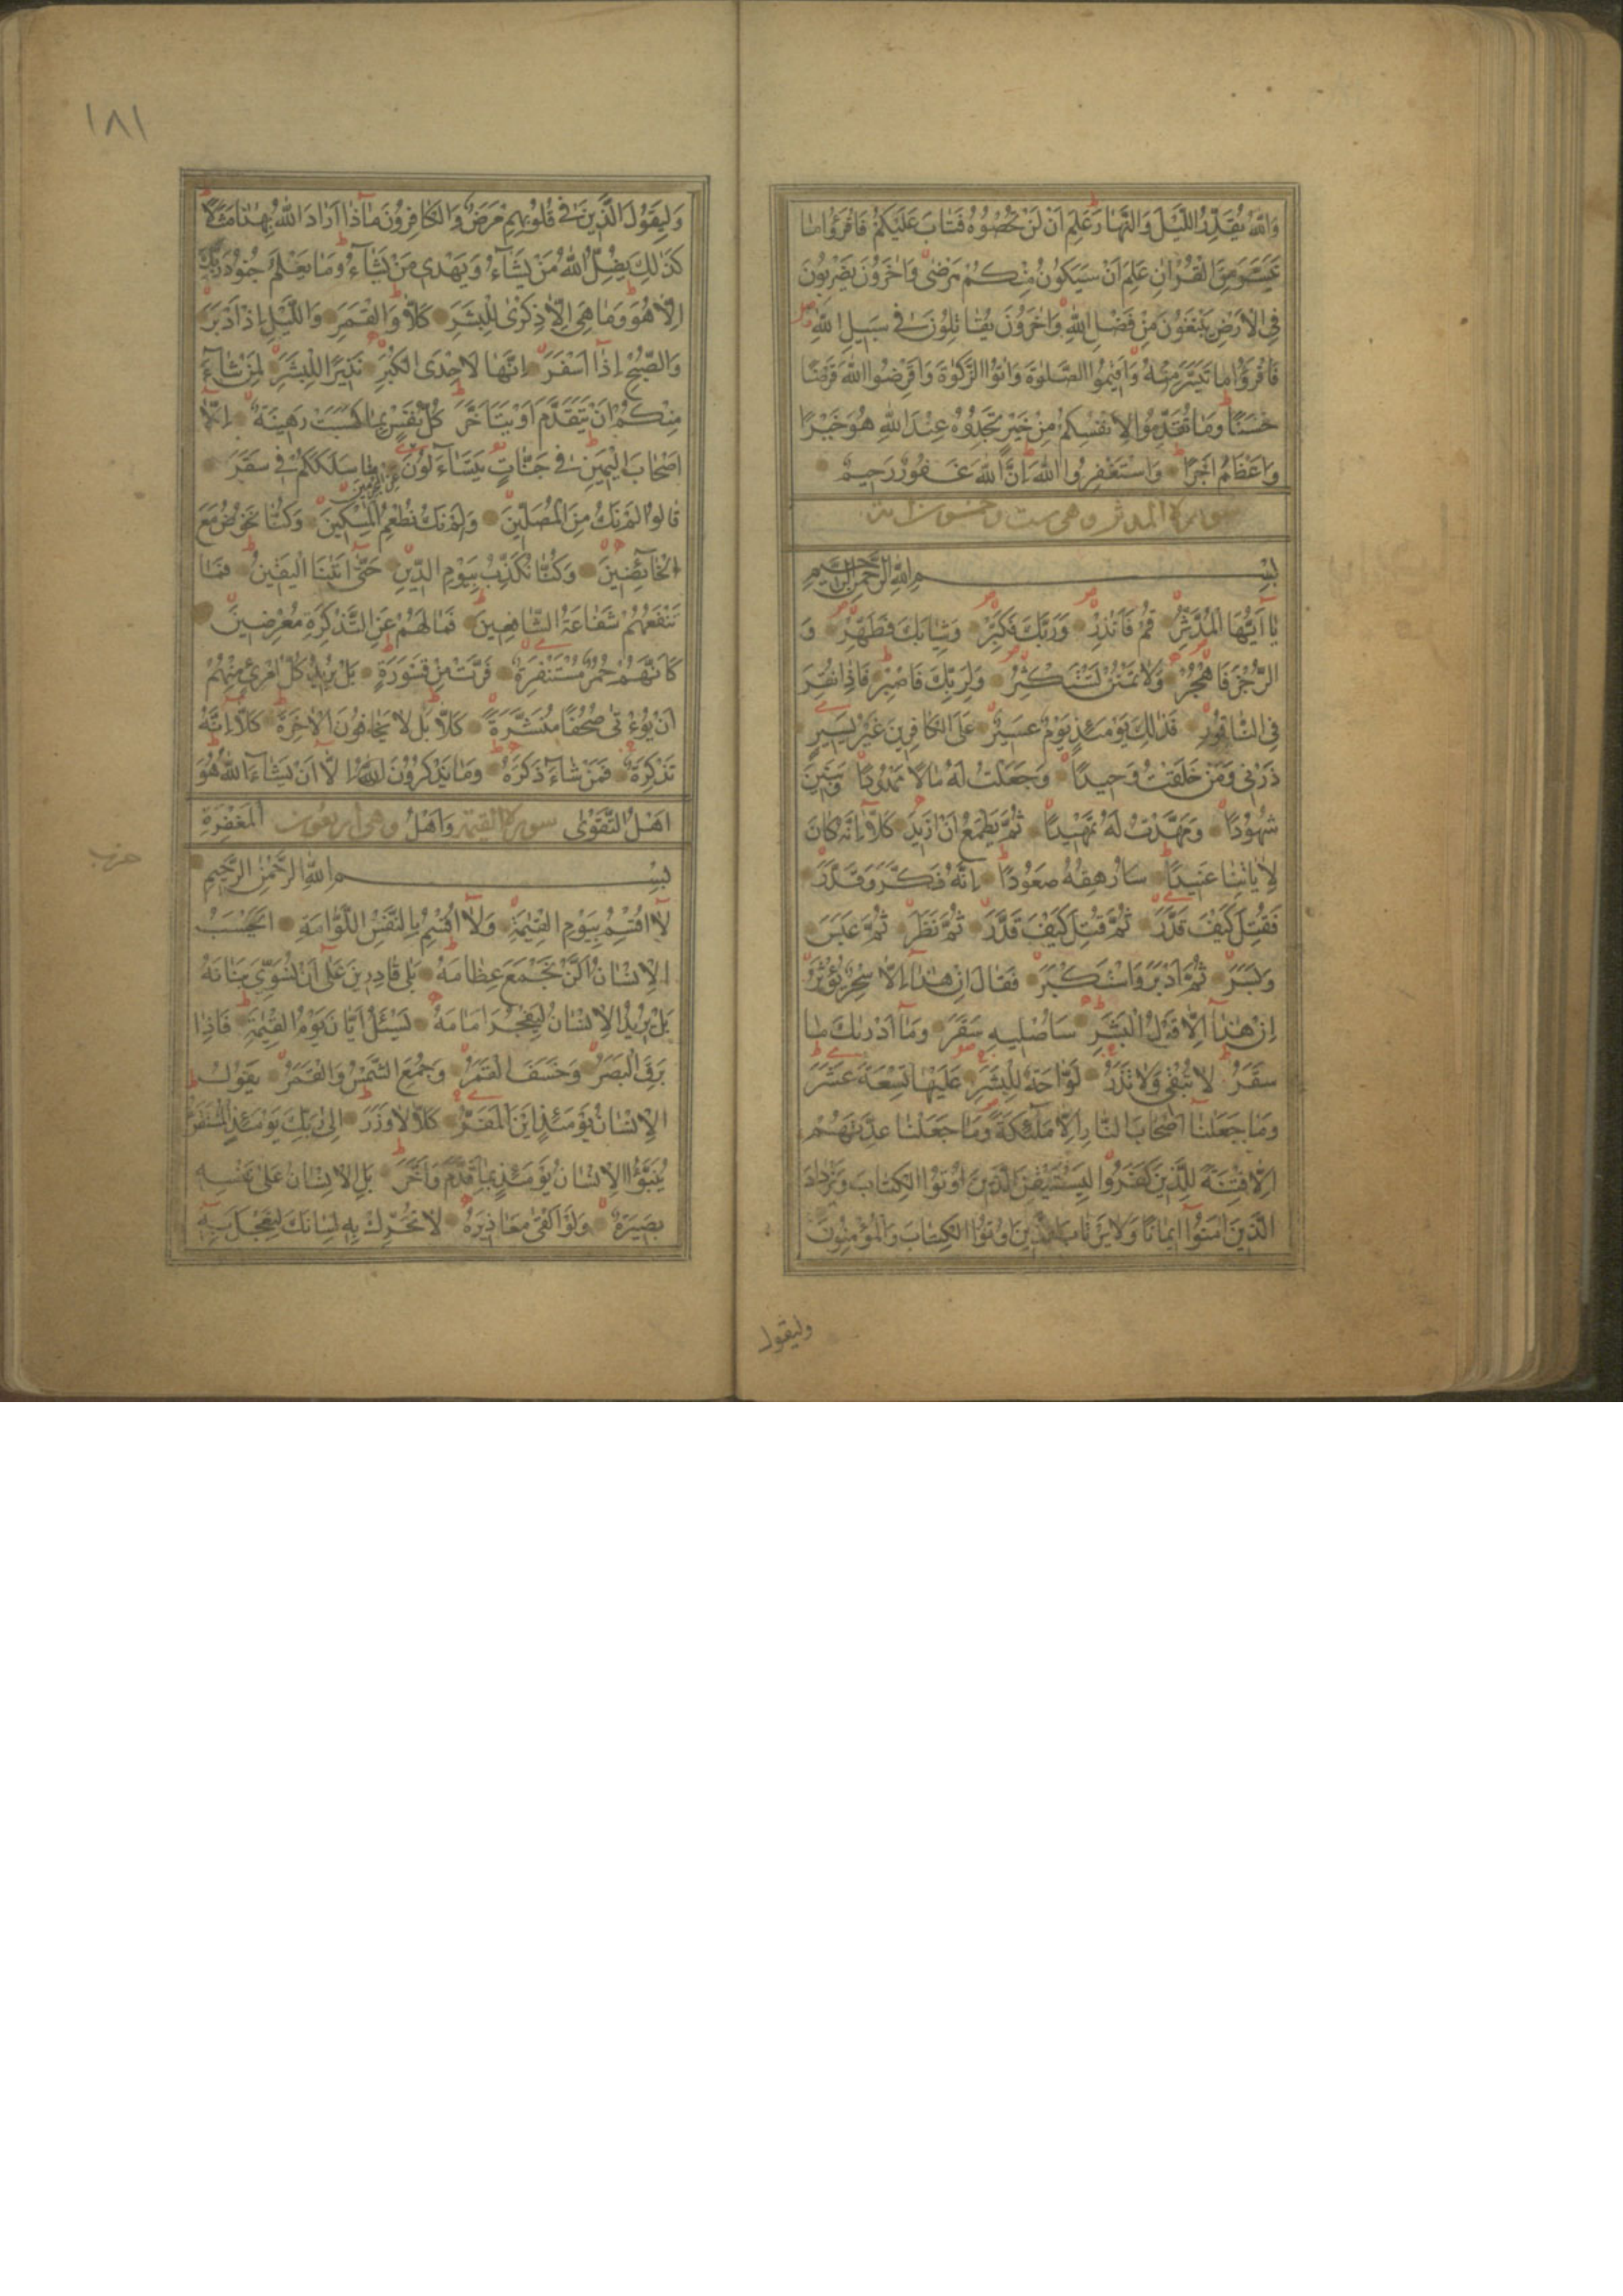 وَاللّٰهُ يُقَدِّرُ اللَّيْلَ وَالنَّهَارَ عَلِمَ اَنْ لَنْ تُحْصُوهُ فَتَابَ عَلَيْكُمْ فَاقْرَؤُا مَا
تَيَسَّرَ مِنَ الْقُرْاٰنِ عَلِمَ اَنْ سَيَكُونُ مِنْكُمْ مَرْضٰى وَاٰخَرُونَ يَضْرِبُونَ
فِى الْاَرْضِ يَبْتَغُونَ مِنْ فَضْلِ اللّٰهِ وَاٰخَرُونَ يُقَاتِلُونَ فِى سَبِيلِ اللّٰهِ
فَاقْرَؤُا مَا تَيَسَّرَ مِنْهُ وَاَقِيمُوا الصَّلٰوةَ وَاٰتُوا الزَّكٰوةَ وَاَقْرِضُوا اللّٰهَ قَرْضًا
حَسَنًا وَمَا تُقَدِّمُوا لِاَنْفُسِكُمْ مِنْ خَيْرٍ تَجِدُوهُ عِنْدَ اللّٰهِ هُوَ خَيْرًا
وَاَعْظَمَ اَجْرًا وَاسْتَغْفِرُوا اللّٰهَ اِنَّ اللّٰهَ غَفُورٌ رَحِيمٌ
سورة المدثر وهى ست وخمسون اية
بِسْمِ اللّٰهِ الرَّحْمٰنِ الرَّحِيمِ
يَا اَيُّهَا الْمُدَّثِّرُ قُمْ فَاَنْذِرْ وَرَبَّكَ فَكَبِّرْ وَثِيَابَكَ فَطَهِّرْ وَ
الرُّجْزَ فَاهْجُرْ وَلَا تَمْنُنْ تَسْتَكْثِرُ وَلِرَبِّكَ فَاصْبِرْ فَاِذَا نُقِرَ
فِى النَّاقُورِ فَذٰلِكَ يَوْمَئِذٍ يَوْمٌ عَسِيرٌ عَلَى الْكَافِرِينَ غَيْرُ يَسِيرٍ
ذَرْنِى وَمَنْ خَلَقْتُ وَحِيدًا وَجَعَلْتُ لَهُ مَالًا مَمْدُودًا وَبَنِينَ
شُهُودًا وَمَهَّدْتُ لَهُ تَمْهِيدًا ثُمَّ يَطْمَعُ اَنْ اَزِيدَ كَلَّا اِنَّهُ كَانَ
لِاٰيَاتِنَا عَنِيدًا سَاُرْهِقُهُ صَعُودًا اِنَّهُ فَكَّرَ وَقَدَّرَ
فَقُتِلَ كَيْفَ قَدَّرَ ثُمَّ قُتِلَ كَيْفَ قَدَّرَ ثُمَّ نَظَرَ ثُمَّ عَبَسَ
وَبَسَرَ ثُمَّ اَدْبَرَ وَاسْتَكْبَرَ فَقَالَ اِنْ هٰذَا اِلَّا سِحْرٌ يُؤْثَرُ
اِنْ هٰذَا اِلَّا قَوْلُ الْبَشَرِ سَاُصْلِيهِ سَقَرَ وَمَا اَدْرٰىكَ مَا
سَقَرُ لَا تُبْقِى وَلَا تَذَرُ لَوَّاحَةٌ لِلْبَشَرِ عَلَيْهَا تِسْعَةَ عَشَرَ
وَمَا جَعَلْنَا اَصْحَابَ النَّارِ اِلَّا مَلٰئِكَةً وَمَا جَعَلْنَا عِدَّتَهُمْ
اِلَّا فِتْنَةً لِلَّذِينَ كَفَرُوا لِيَسْتَيْقِنَ الَّذِينَ اُوتُوا الْكِتَابَ وَيَزْدَادَ
الَّذِينَ اٰمَنُوا اِيمَانًا وَلَا يَرْتَابَ الَّذِينَ اُوتُوا الْكِتَابَ وَالْمُؤْمِنُونَ
وليقول
١٨١
وَلِيَقُولَ الَّذِينَ فِى قُلُوبِهِمْ مَرَضٌ وَالْكَافِرُونَ مَاذَا اَرَادَ اللّٰهُ بِهٰذَا مَثَلًا
كَذٰلِكَ يُضِلُّ اللّٰهُ مَنْ يَشَاءُ وَيَهْدِى مَنْ يَشَاءُ وَمَا يَعْلَمُ جُنُودَ رَبِّكَ
اِلَّا هُوَ وَمَا هِىَ اِلَّا ذِكْرٰى لِلْبَشَرِ كَلَّا وَالْقَمَرِ وَاللَّيْلِ اِذْ اَدْبَرَ
وَالصُّبْحِ اِذَا اَسْفَرَ اِنَّهَا لَاِحْدَى الْكُبَرِ نَذِيرًا لِلْبَشَرِ لِمَنْ شَاءَ
مِنْكُمْ اَنْ يَتَقَدَّمَ اَوْ يَتَاَخَّرَ كُلُّ نَفْسٍ بِمَا كَسَبَتْ رَهِينَةٌ اِلَّا
اَصْحَابَ الْيَمِينِ فِى جَنَّاتٍ يَتَسَاءَلُونَ عن المجرمين مَا سَلَكَكُمْ فِى سَقَرَ
قَالُوا لَمْ نَكُ مِنَ الْمُصَلِّينَ وَلَمْ نَكُ نُطْعِمُ الْمِسْكِينَ وَكُنَّا نَخُوضُ مَعَ
الْخَائِضِينَ وَكُنَّا نُكَذِّبُ بِيَوْمِ الدِّينِ حَتّٰى اَتٰينَا الْيَقِينُ فَمَا
تَنْفَعُهُمْ شَفَاعَةُ الشَّافِعِينَ فَمَا لَهُمْ عَنِ التَّذْكِرَةِ مُعْرِضِينَ
كَاَنَّهُمْ حُمُرٌ مُسْتَنْفِرَةٌ فَرَّتْ مِنْ قَسْوَرَةٍ بَلْ يُرِيدُ كُلُّ امْرِئٍ مِنْهُمْ
اَنْ يُؤْتٰى صُحُفًا مُنَشَّرَةً كَلَّا بَلْ لَا يَخَافُونَ الْاٰخِرَةَ كَلَّا اِنَّهُ
تَذْكِرَةٌ فَمَنْ شَاءَ ذَكَرَهُ وَمَا يَذْكُرُونَ اِلَّا اَنْ يَشَاءَ اللّٰهُ هُوَ
اَهْلُ التَّقْوٰى سورة القيمة وَاَهْلُ وهى اربعون الْمَغْفِرَةِ
حزب
بِسْمِ اللّٰهِ الرَّحْمٰنِ الرَّحِيمِ
لَا اُقْسِمُ بِيَوْمِ الْقِيٰمَةِ وَلَا اُقْسِمُ بِالنَّفْسِ اللَّوَّامَةِ اَيَحْسَبُ
الْاِنْسَانُ اَلَّنْ نَجْمَعَ عِظَامَهُ بَلٰى قَادِرِينَ عَلٰى اَنْ نُسَوِّىَ بَنَانَهُ
بَلْ يُرِيدُ الْاِنْسَانُ لِيَفْجُرَ اَمَامَهُ يَسْئَلُ اَيَّانَ يَوْمُ الْقِيٰمَةِ فَاِذَا
بَرِقَ الْبَصَرُ وَخَسَفَ الْقَمَرُ وَجُمِعَ الشَّمْسُ وَالْقَمَرُ يَقُولُ
الْاِنْسَانُ يَوْمَئِذٍ اَيْنَ الْمَفَرُّ كَلَّا لَا وَزَرَ اِلٰى رَبِّكَ يَوْمَئِذٍ الْمُسْتَقَرُّ
يُنَبَّؤُا الْاِنْسَانُ يَوْمَئِذٍ بِمَا قَدَّمَ وَاَخَّرَ بَلِ الْاِنْسَانُ عَلٰى نَفْسِهِ
بَصِيرَةٌ وَلَوْ اَلْقٰى مَعَاذِيرَهُ لَا تُحَرِّكْ بِهِ لِسَانَكَ لِتَعْجَلَ بِهِ